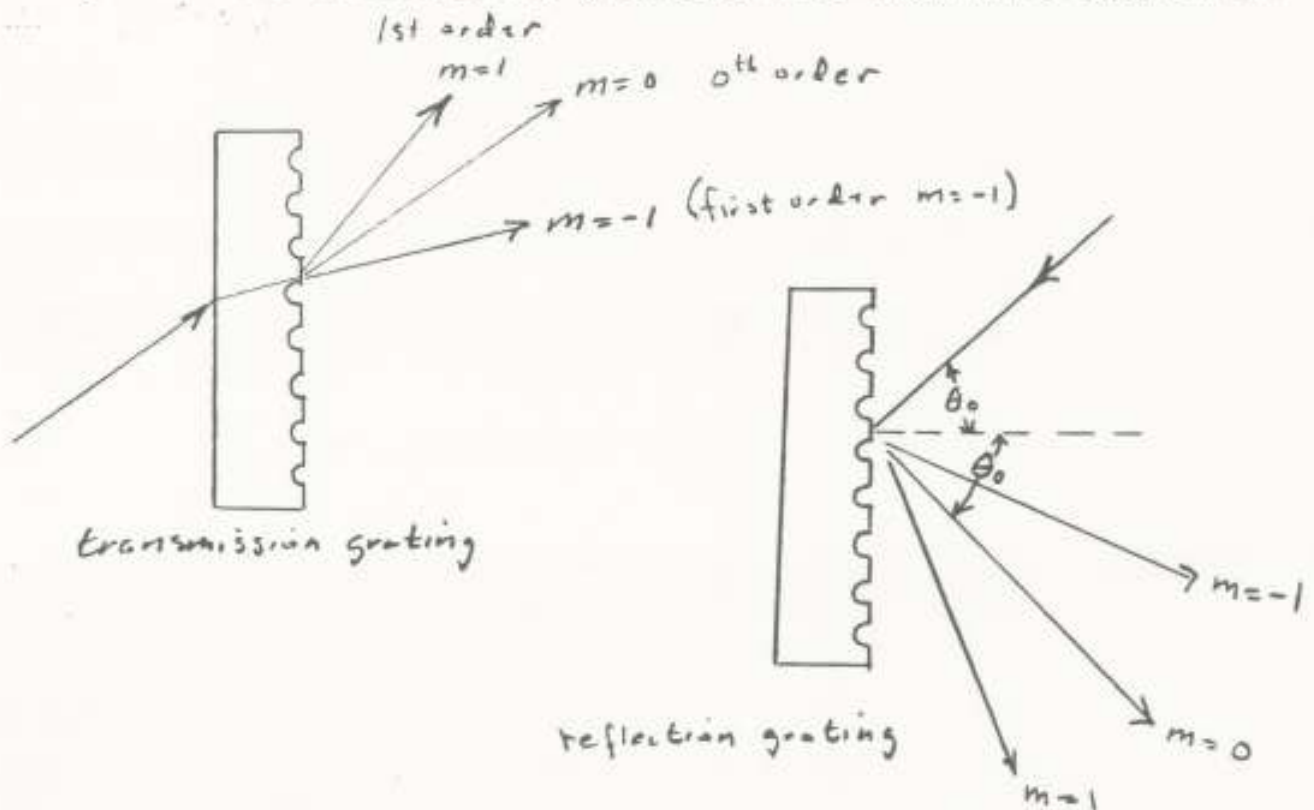 1st order
m=1
m=0 0th order
m=-1 (first order m=-1)
θ₀
θ₀
transmission grating
m=-1
reflection grating
m=0
m=1